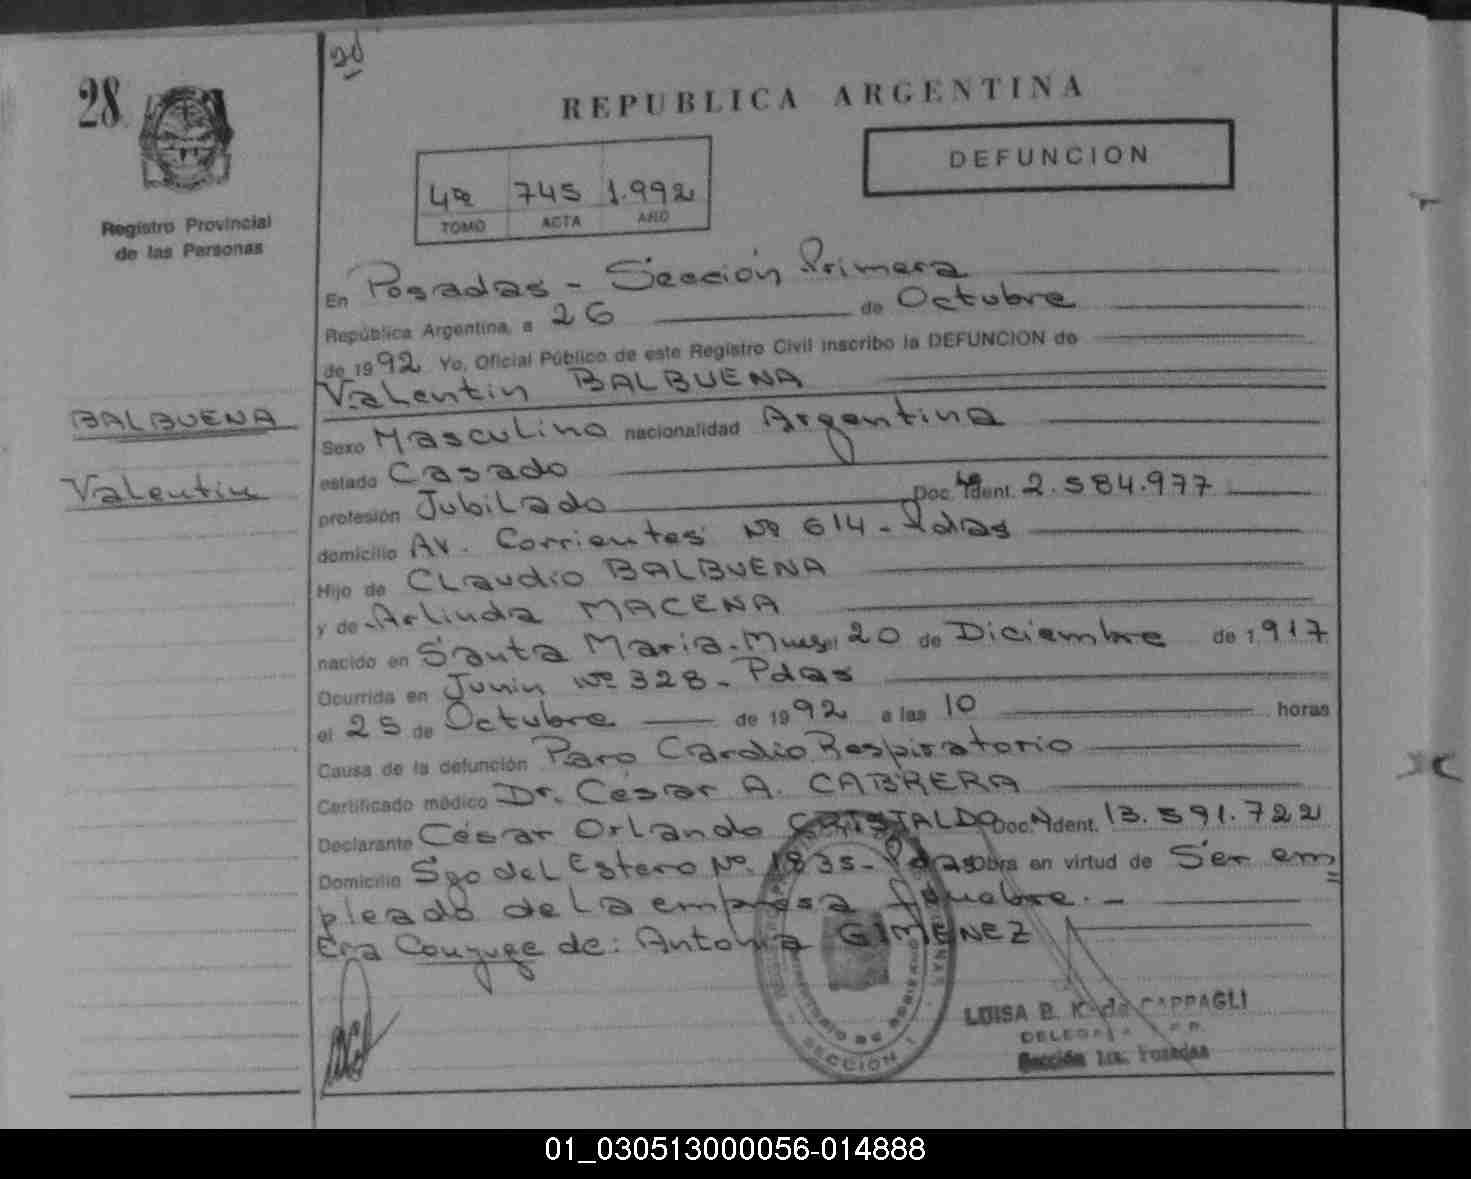 28
Registro Provincial
de las Personas
BALBUENA
Valentin
REPUBLICA ARGENTINA
DEFUNCION
4º 745 1.992
TOMO ACTA AÑO
En Posadas - Sección Primera
República Argentina, a 26 de Octubre
de 1992 Yo, Oficial Público de este Registro Civil inscribo la DEFUNCION de
Valentin BALBUENA
Sexo Masculino nacionalidad Argentina
estado Casado
profesión Jubilado Doc. Ident. 2.584.977
domicilio Av. Corrientes Nº 614 - Pdas
Hijo de Claudio BALBUENA
y de Arlinda MACENA
nacido en Santa Maria - Mnes, el 20 de Diciembre de 1.917
Ocurrida en Junin Nº 328 - Pdas
el 25 de Octubre de 1992 a las 10 horas
Causa de la defunción Paro Cardio Respiratorio
Certificado médico Dr. César A. CABRERA
Declarante César Orlando CRISTALDO Doc. Ident. 13.591.722
Domicilio Sgo del Estero Nº 1835 - Pdas Obra en virtud de Ser em
pleado de la empresa fúnebre. -
Era Conyuge de: Antonia GIMENEZ
SECCION 1
LUISA B. K. de CAPPAGLI
Sección 1ra. Posadas
01_030513000056-014888